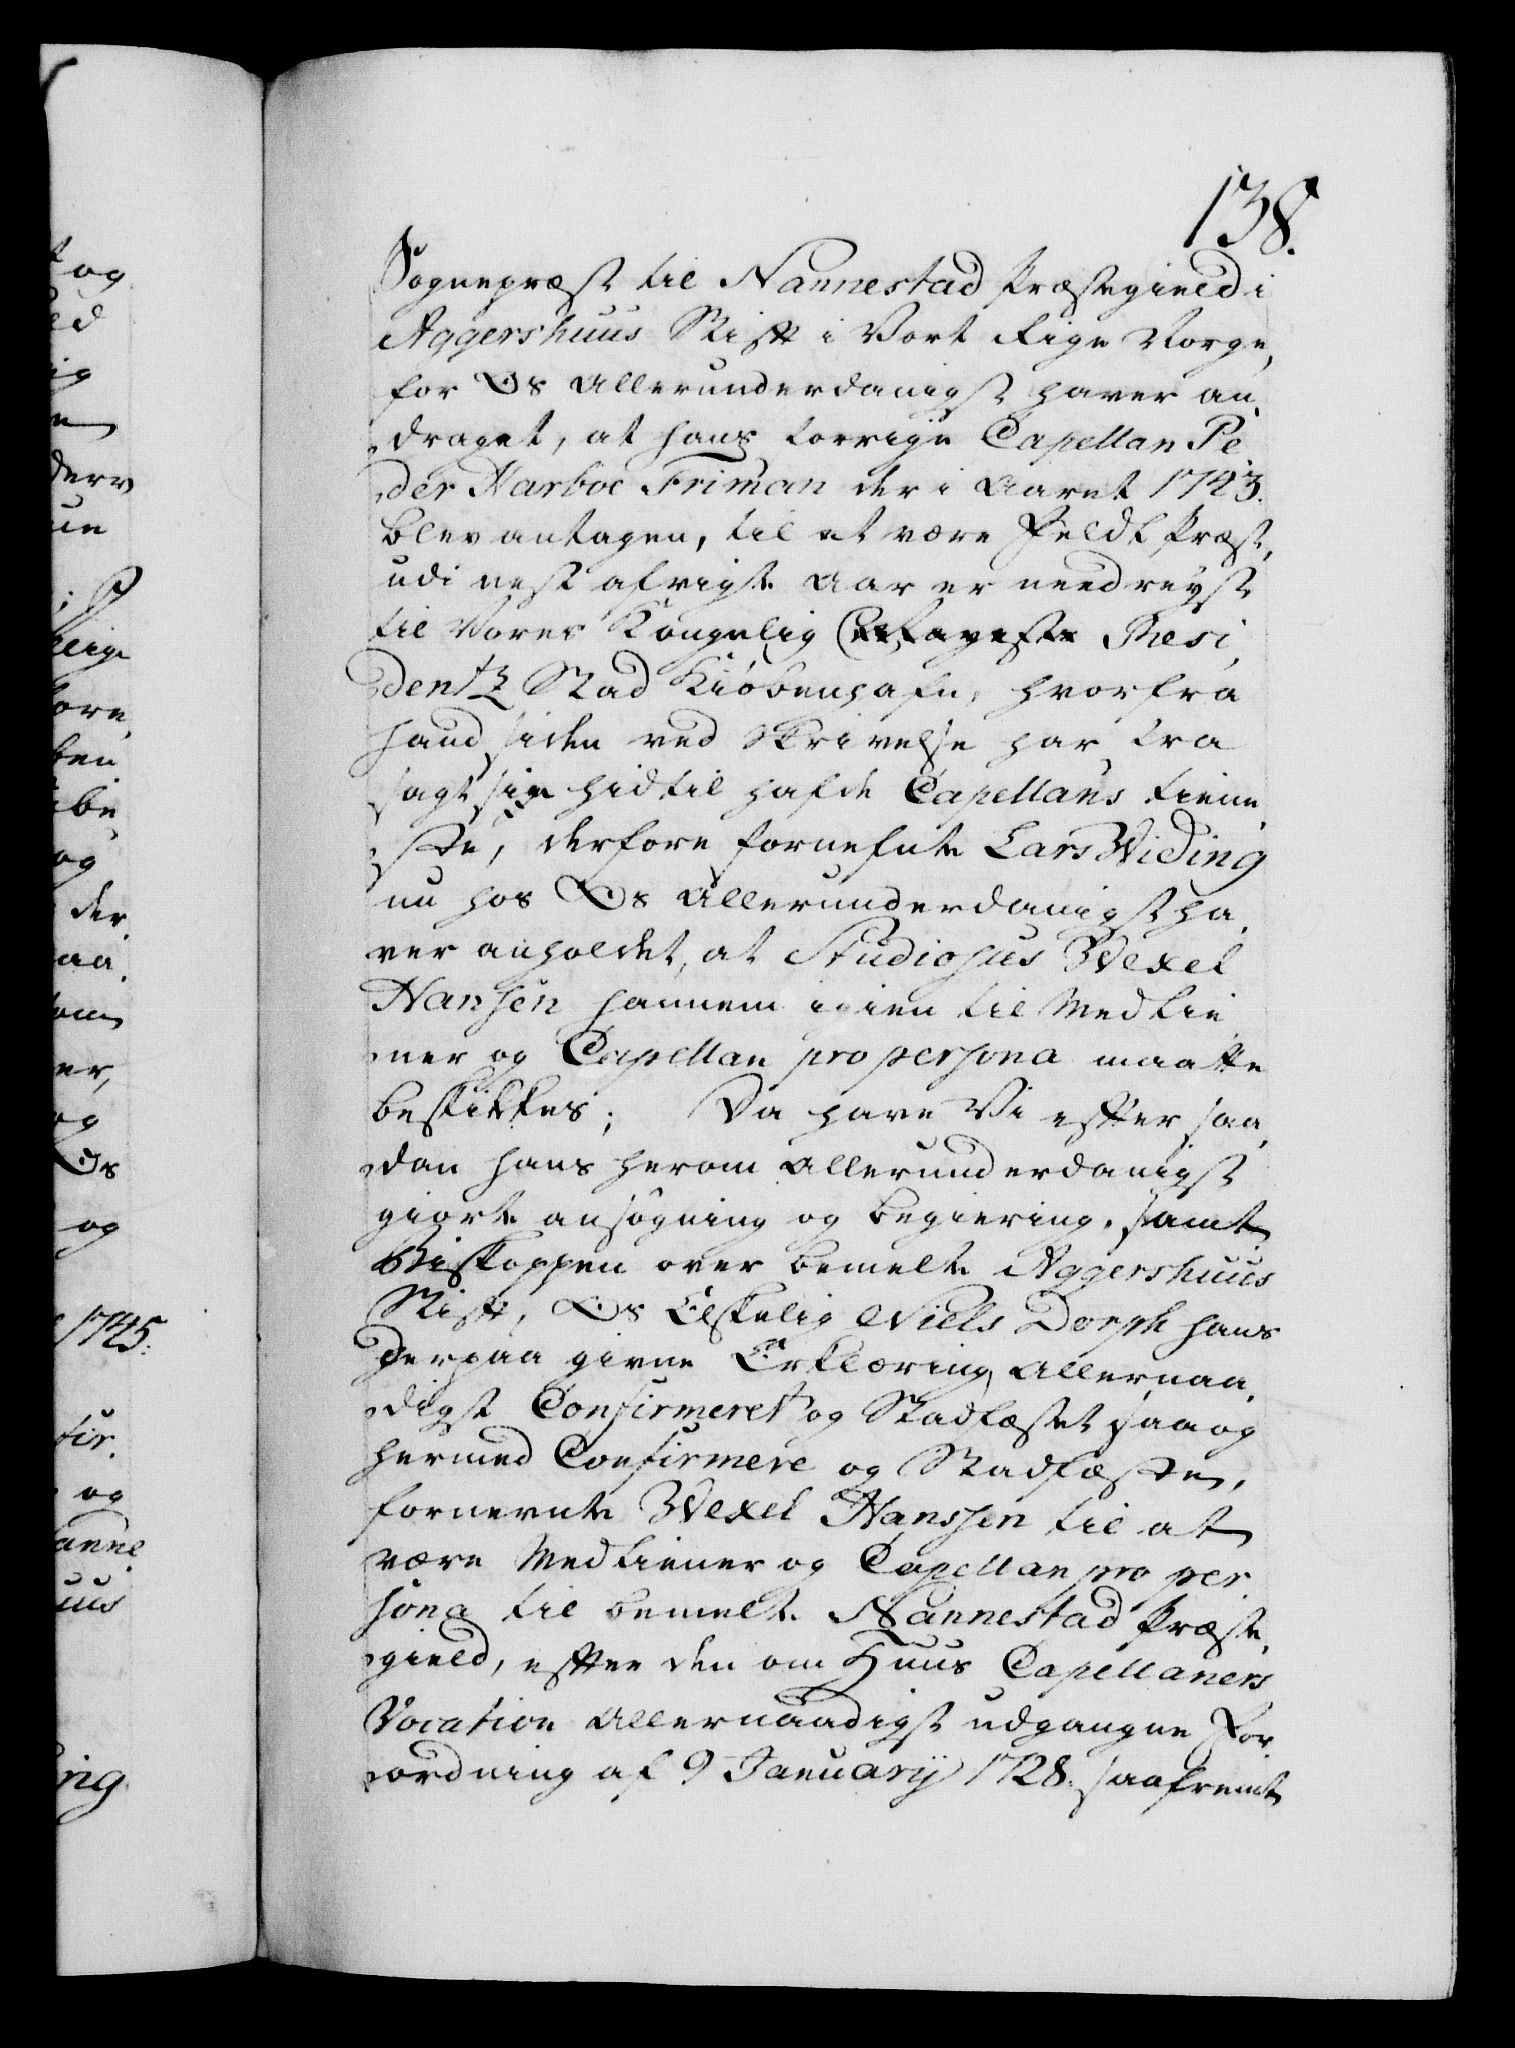 138.
Sognepræst til Nannestad Præstegield i
Aggershuus Stift i Vort Rige Norge,
for Os allerunderdanigst haver an,
draget, at hans forrige Capellan Pe
der Harboe Friman der i Aaret 1743.
blev antagen, til at være Feldt Præst,
udi nest afvigte Aar er needreyst
til Vores Kongelig Resi,
dentz Stad Kiøbenhafn, hvorfra
hand siden ved Skrivelse har fra
sagt sig hidtil hafde Capellans tiene,
ste, derfore fornefnte Lars Widing
nu hos Os allerunderdanigst ha,
ver anholdet, at Studiosus Wexel
Hansen hannem igien til Medtie
ner og Capellan pro persona maatte
beskikkes; Da have Vi efter saa,
dan hans herom allerunderdanigst
giorte ansøgning og begiering, samt
Biskoppen over bemelte Aggershuus
Stift, Os Elskelig Niels Dorph hans
derpaa givne Erklæring, allernaa,
digst Confirmeret og Stadfæstet saa og
hermed Confirmere og Stadfæste,
fornevnte Wexel Hanssen til at
være Medtiener og Capellan pro per
sona til bemelte Nannestad Præste,
gield, efter den om Huus Capellaners
Vocation allernaadigst udgangne For,
ordning af 9 Januarij 1728. saafremt
og
1745.
og
Os
og